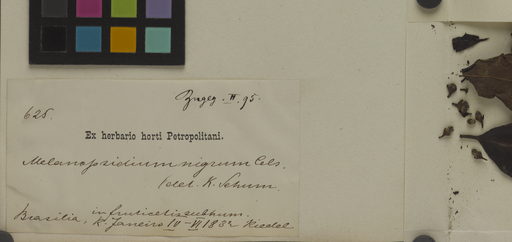 Zugeg. II. 95.
625.
Ex herbario horti Petropolitani.
Melanopsidium nigrum Cels.
(det. K. Schum.
Brasilia, in fruticetis subhum.
R. Janeiro IV-VI 1832 Riedel